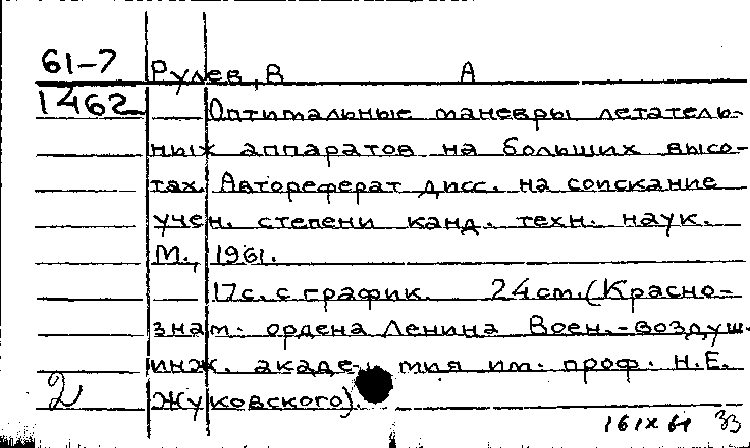 61-7
Рулев, В А
1462
Оптимальные маневры летатель-
ных аппаратов на больших высо-
тах. Автореферат дисс. на соискание
учен. степени канд. техн. наук.
М., 1961.
17с. с график. 24см. (Красно-
знам. ордена Ленина Воен.-воздуш.
инж. академия им. проф. Н.Е.
2
Жуковского).
161х61 33